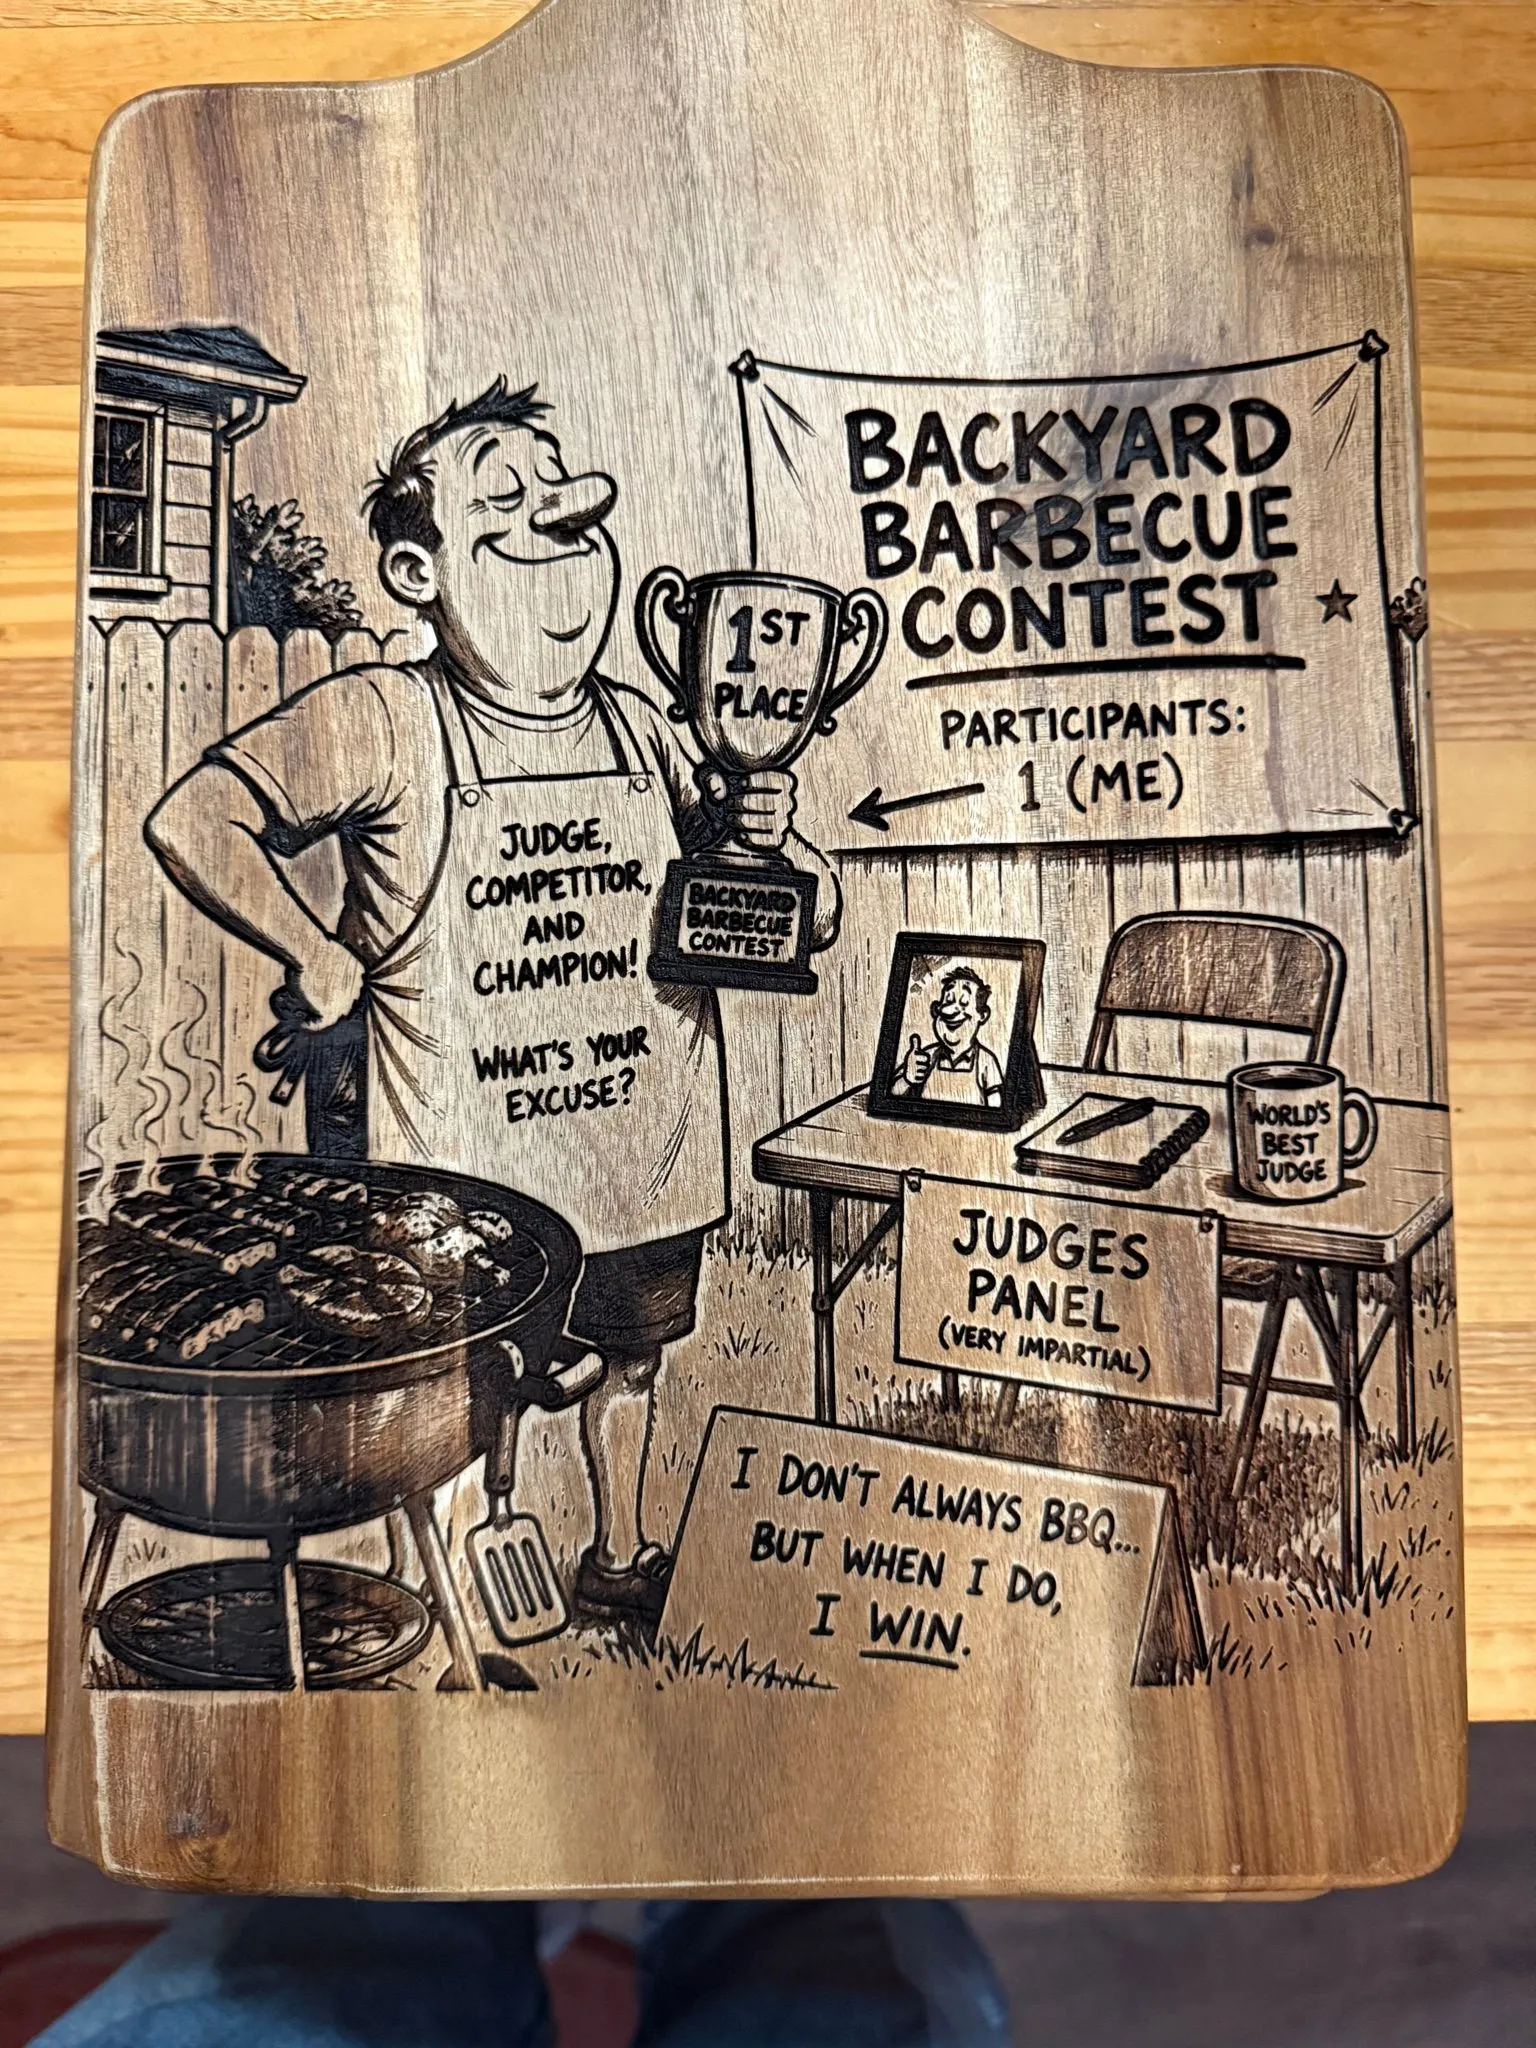 BACKYARD
BARBECUE
CONTEST
PARTICIPANTS:
1 (ME)
1ST
PLACE
BACKYARD
BARBECUE
CONTEST
JUDGE,
COMPETITOR,
AND
CHAMPION!
WHAT'S YOUR
EXCUSE?
WORLD'S
BEST
JUDGE
JUDGES
PANEL
(VERY IMPARTIAL)
I DON'T ALWAYS BBQ...
BUT WHEN I DO,
I WIN.